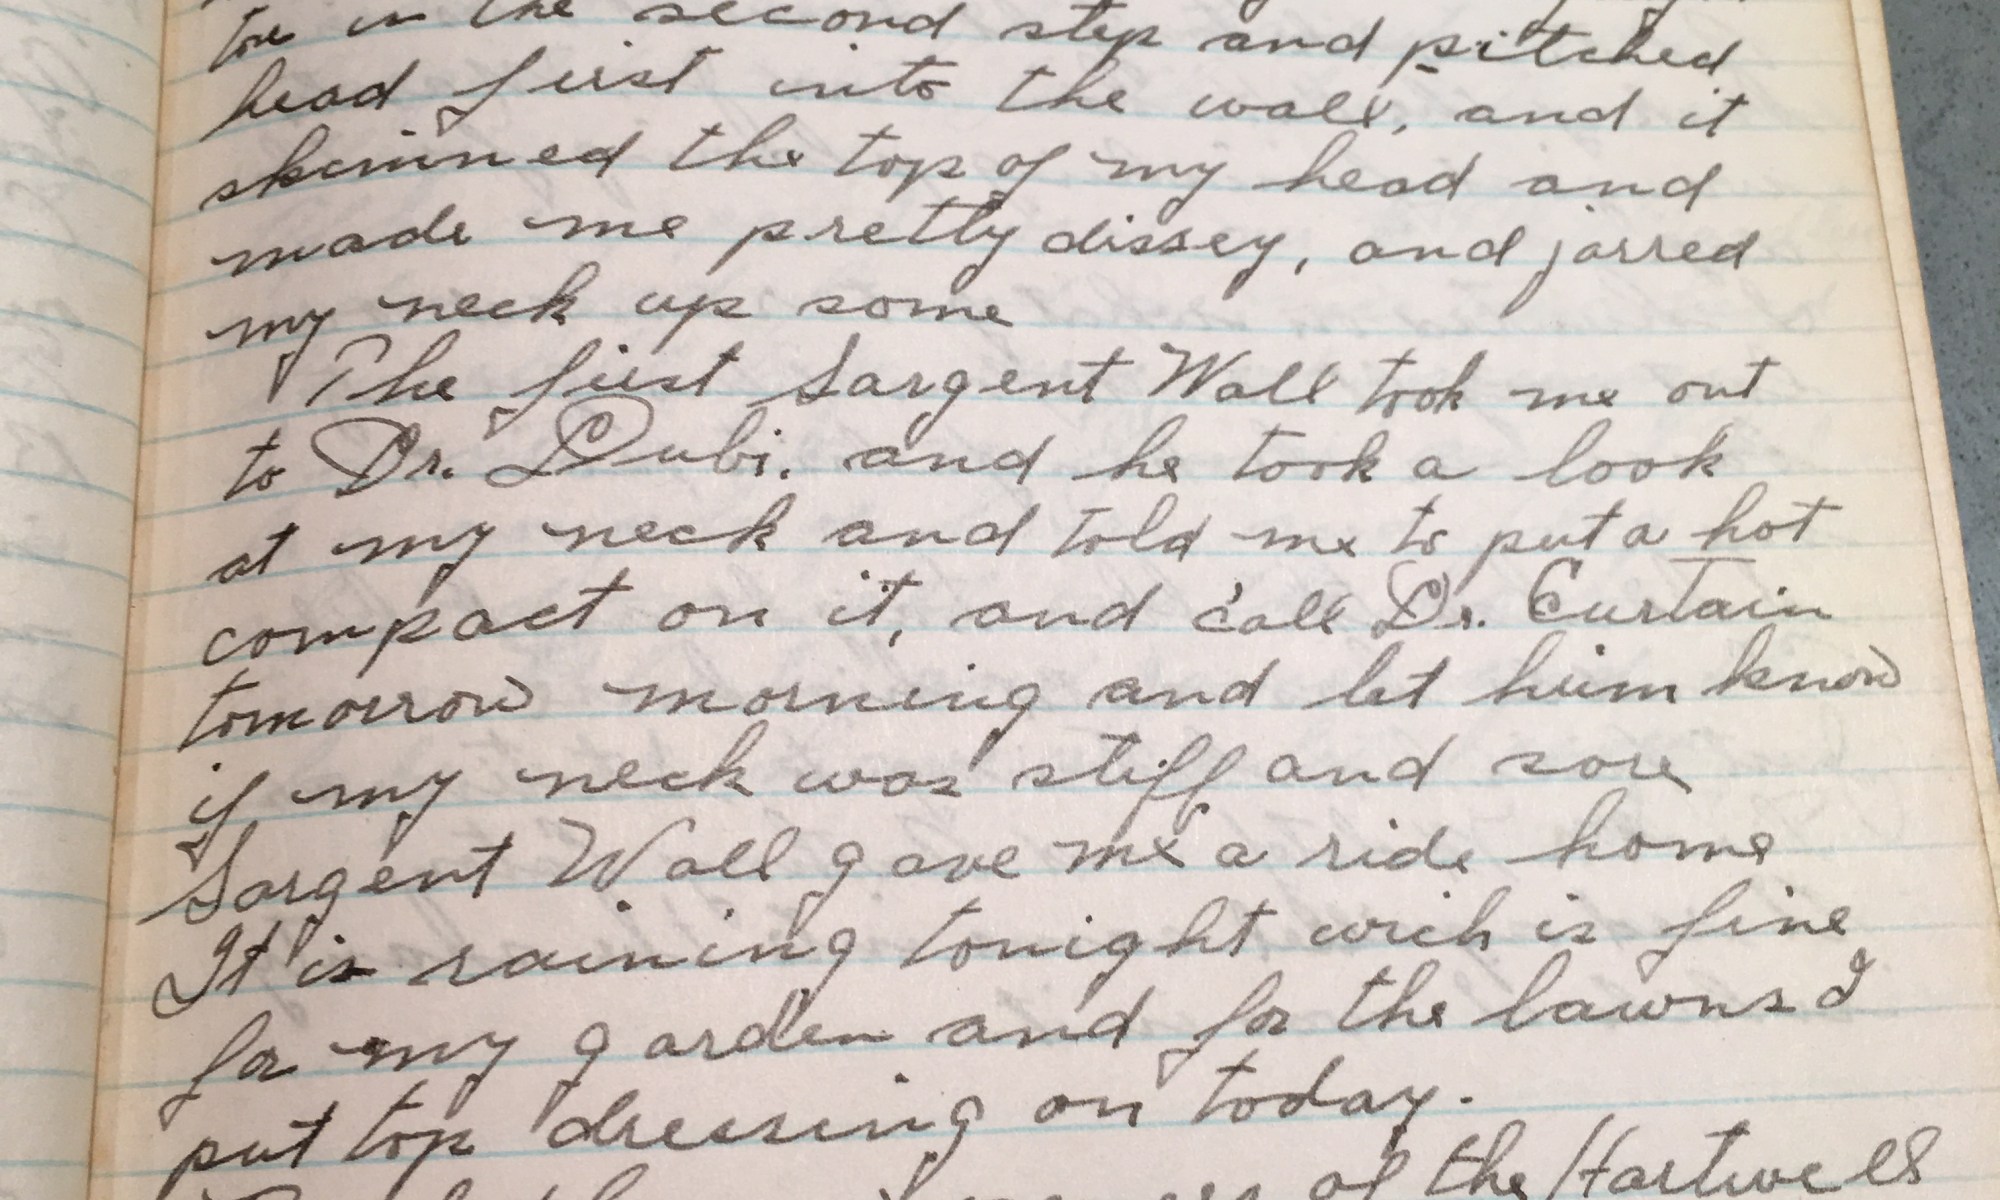 toe in the second step and pitched
head first into the wall, and it
skinned the top of my head and
made me pretty dissey, and jarred
my neck up some
The first Sargent Wall took me out
to Dr. Dubi. and he took a look
at my neck and told me to put a hot
compact on it, and call Dr. Curtain
tomorrow morning and let him know
if my neck was stiff and sore
Sargent Wall gave me a ride home
It is raining tonight wich is fine
for my garden and for the lawns I
put top dressing on today.
of the Hartwell